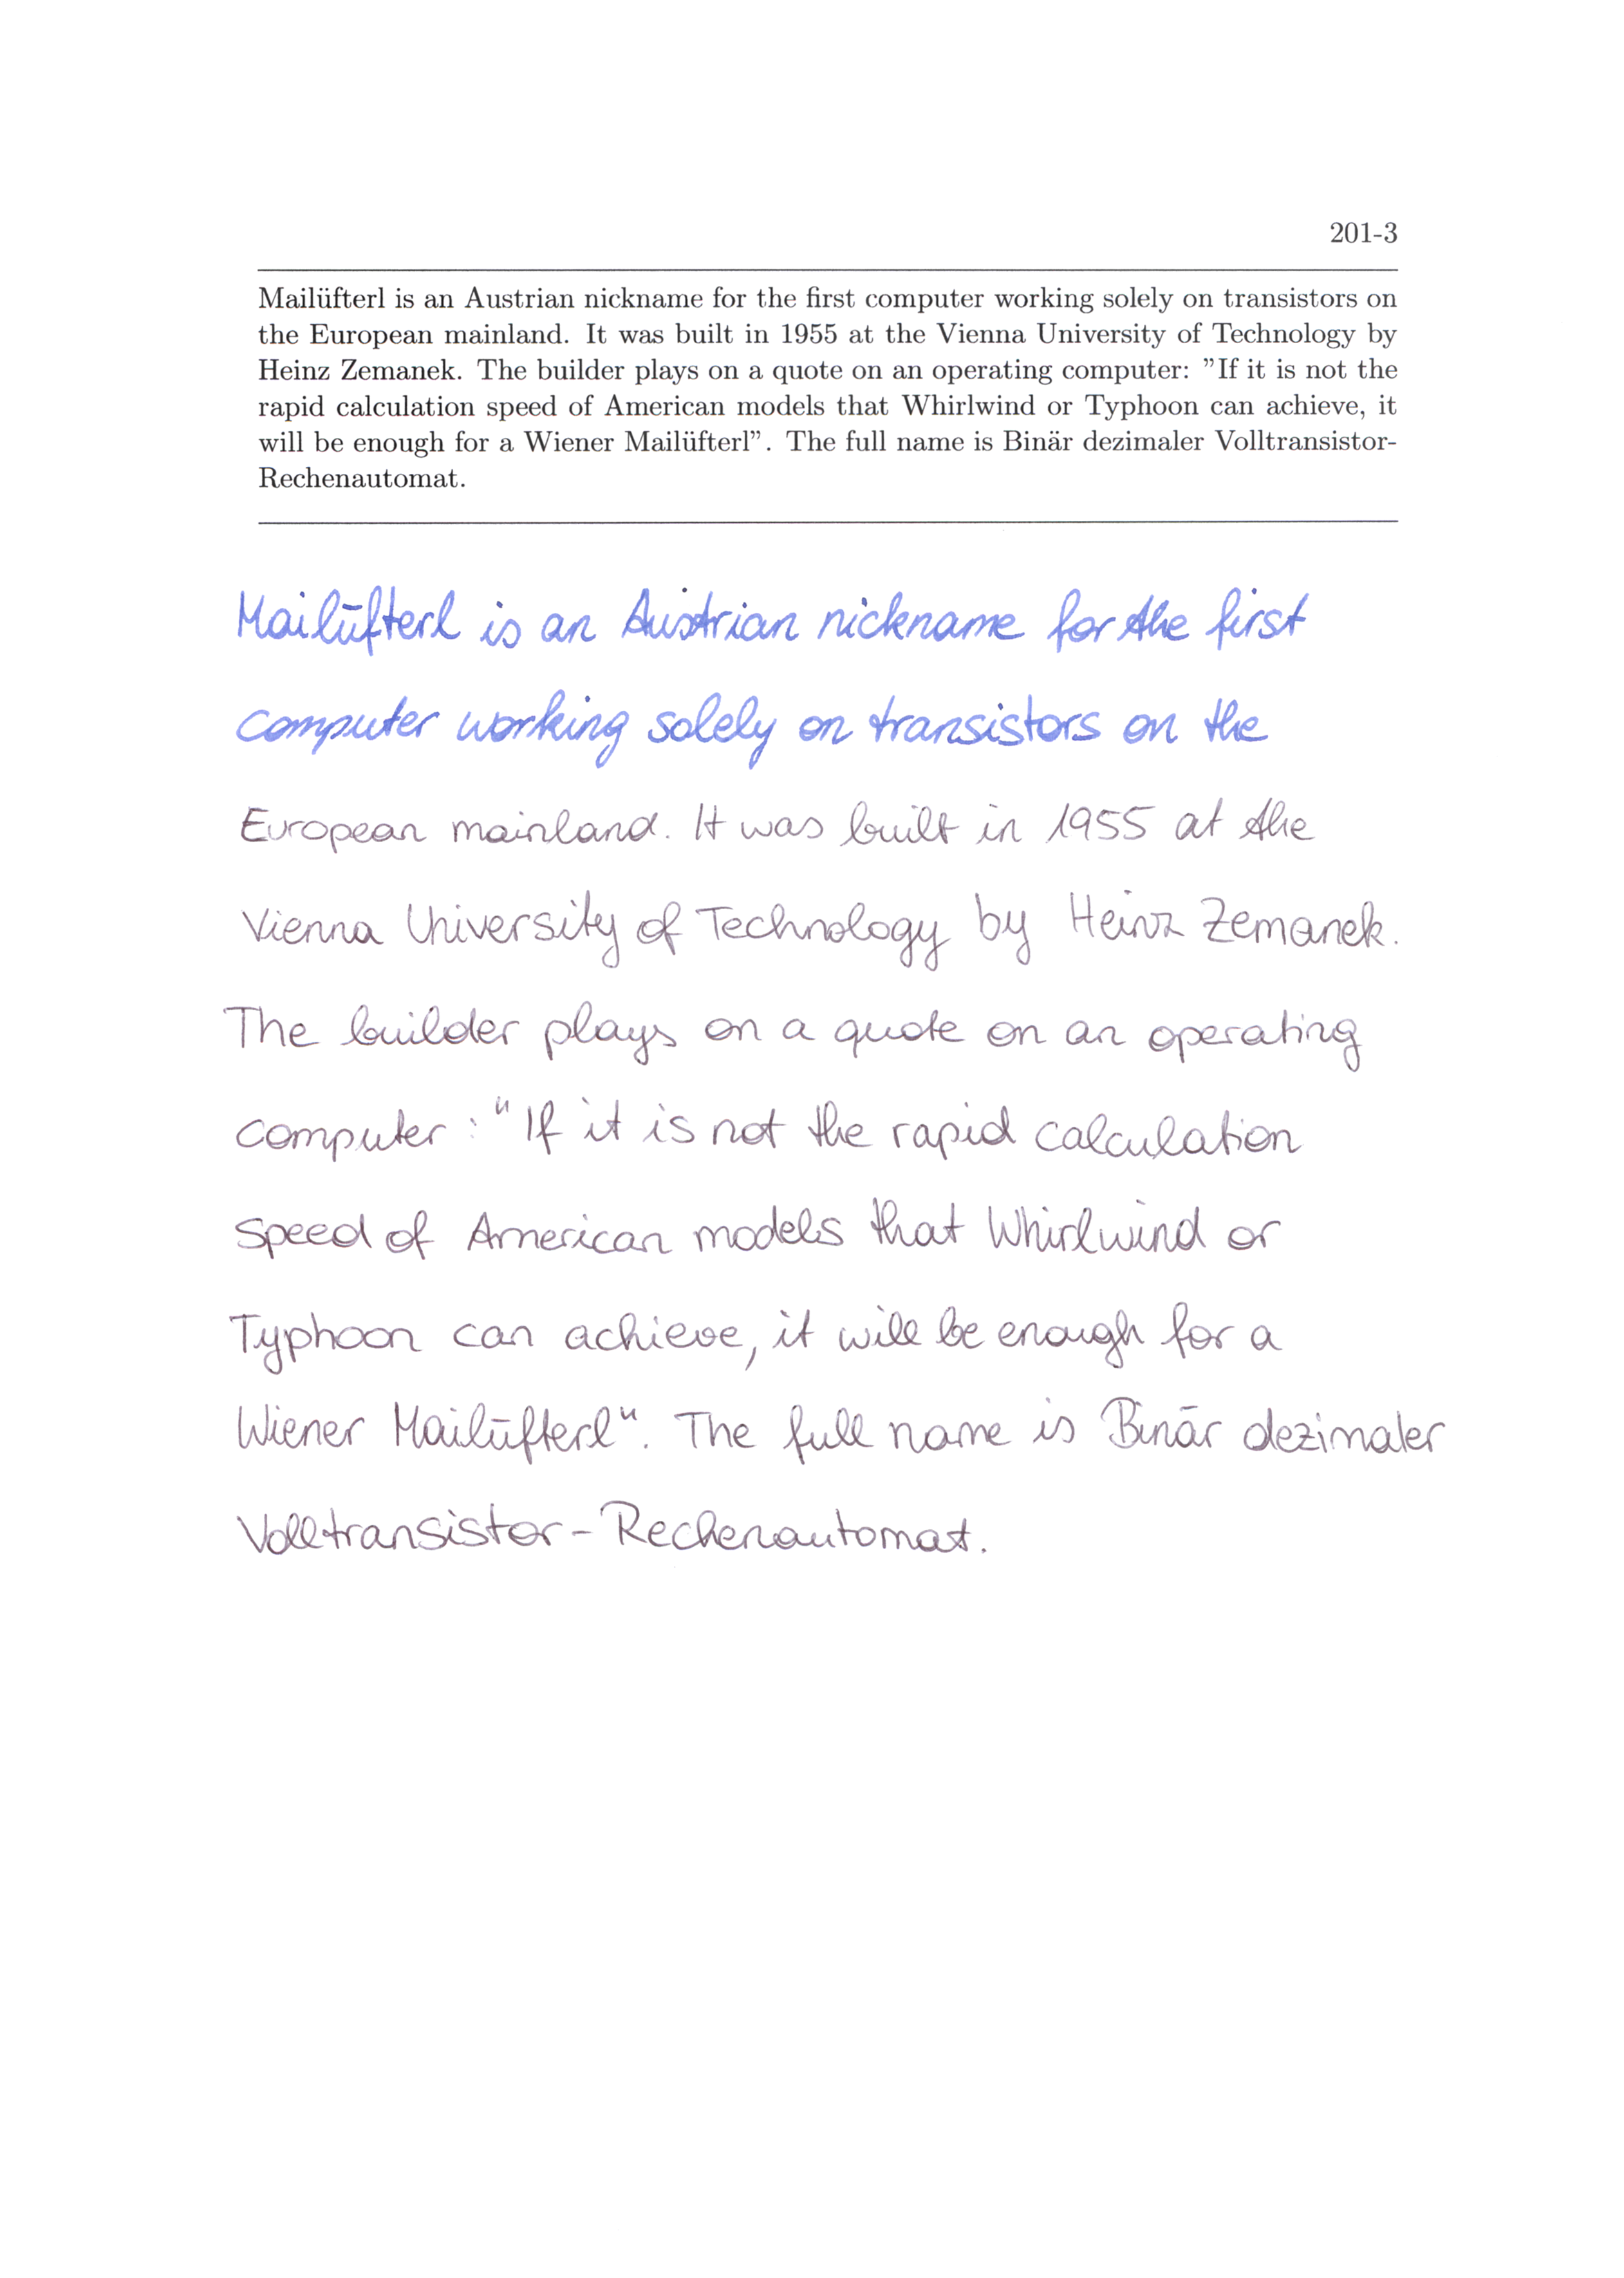 201-3
Mailüfterl is an Austrian nickname for the first computer working solely on transistors on
the European mainland. It was built in 1955 at the Vienna University of Technology by
Heinz Zemanek. The builder plays on a quote on an operating computer: ”If it is not the
rapid calculation speed of American models that Whirlwind or Typhoon can achieve, it
will be enough for a Wiener Mailüfterl”. The full name is Binär dezimaler Volltransistor-
Rechenautomat.
Mailüfterl is an Austrian nickname for the first
computer working solely on transistors on the
European mainland. It was built in 1955 at the
Vienna University of Technology by Heinz Zemanek.
The builder plays on a quote on an operating
computer: "If it is not the rapid calculation
speed of American models that Whirlwind or
Typhoon can achieve, it will be enough for a
Wiener Mailüfterl". The full name is Binär dezimaler
Volltransistor-Rechenautomat.